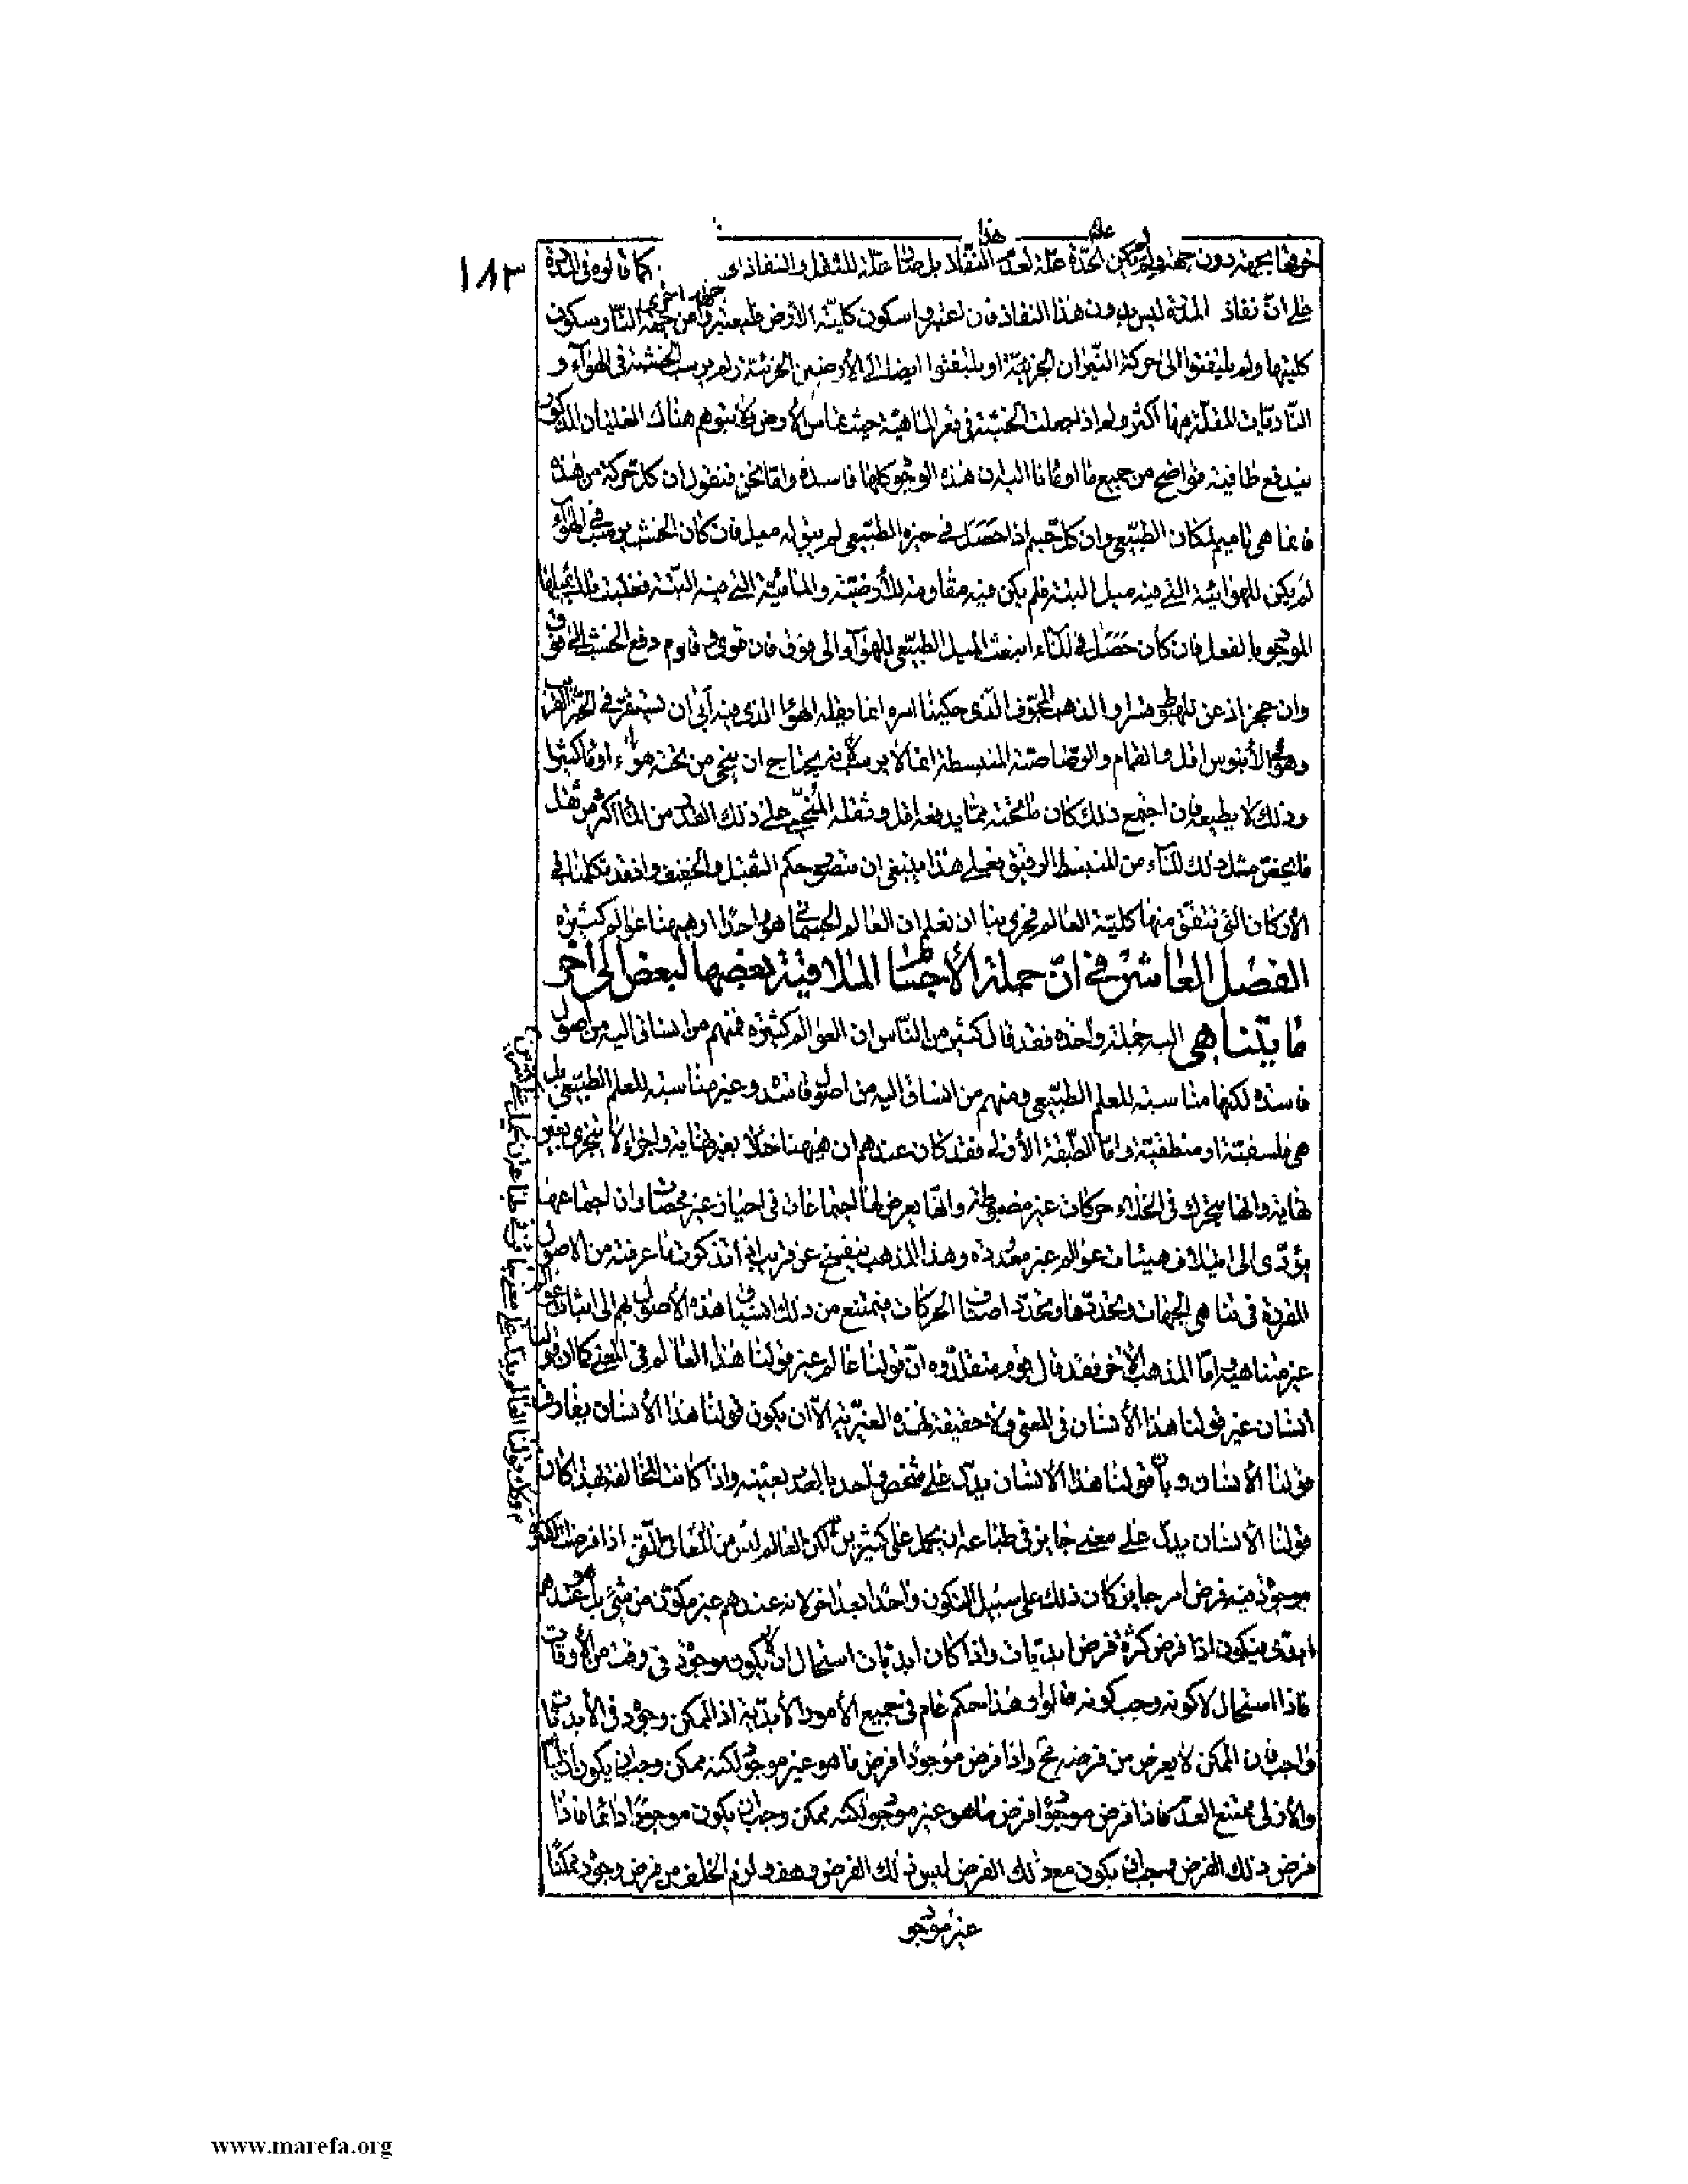 ١٨٣
خرقها بجهة دون جهة ولم تكن الحدة علة لعدم هذا النفاذ بل علة للثقل والنفاذ كما قالوه فى الحدة
على ان نفاذ ليس بدون هذا النفاذ فان اعتبروا سكون كلية الأرض فليعتبروا من جهة اخرى النار وسكون
كليتها ولم يلتفتوا الى حركة النيران الجزئية او يلتفتوا ايضا الى الأرضين الجزئية ولم يرسب الخشبة فى الهواء و
الناريات المقلة منها أكثر ولم اذا جعلت الخشبة فى قعر الماء بحيث تماس الأرض فلا يتوهم هناك الغليان المذكور
يندفع طافية فواضح من جميع ما اومأنا اليه ان هذه الوجوه كلها فاسدة واما نحن فنقول ان كل حركة من هذه
فانما هى تاميم لمكان الطبيعى وان كل جسم اذا حصل فى حيزه الطبيعى لم يبق له ميل فان كان الخشب يرسب فى الهواء
لم يكن للهوائية التى فيه ميل البتة فلم يكن فيه مقاومة للأرضية والمائية التى فيه البتة فغلبت تلك بميلها
الموجود بالفعل فان كان حصل فى الماء انبعث الميل الطبيعى للهواء الى فوق فان قوى وقاوم دفع الخشب الى فوق
وان عجز اذعن للهبوط قسرا والذهب المجوف الذى حكينا امره انما يقله الهواء الذى فيه أبى ان يستقر فى الحيز الغريب
وهواء الأبنوس اقل والغمام والرصاصة المنبسطة انما لا يرسب لأنه يحتاج ان ينحى من تحته هواء او ماء كثيرا
وذلك لا يطيعه فان اجتمع ذلك كان ما تحته مما يدفعه اقل وثقله المنحى على ذلك القدر من الماء اكثر من ثقل
ما يخص مثل ذلك الماء من المنبسط الرقيق فعلى هذا ينبغى ان يتصور حكم الثقيل والخفيف واذ قد تكلمنا فى
الأركان التى تتفق منها كلية العالم فحرى بنا ان نعلم ان العالم الجسمانى هو واحد ام هيهنا عوالم كثيرة
الفصل العاشر فى ان جملة الأجسام الملاقية بعضها لبعض الى آخر
ما يتناهى اليه جملة واحدة فقد قال كثير من الناس ان العوالم كثيرة فمنهم من انساق اليه من اصول
فاسدة لكنها مناسبة للعلم الطبيعى ومنهم من انساق اليه من اصول فاسدة وغير مناسبة للعلم الطبيعى بل
هى فلسفية او منطقية واما الطبقة الأولى فقد كان عندهم ان هيهنا خلاء بغير نهاية واجزاء لا يتجزى بغير
نهاية وانها يتحرك فى الخلاء حركات غير مضبوطة وانها يعرض لها اجتماعات فى احياز غير محصاة وان اجتماعها
يؤدى الى ايتلاف هيئات عوالم غير معدودة وهذا المذهب ينفسخ عن قريب اذا تذكرت ما عرفته من الاصول
المقررة فى تناهى الجهات وتحددها وتحدد اصناف الحركات فيمتنع من ذلك انسياق هذه الأصول بهم الى اثبات عوالم
غير متناهية واما المذهب الآخر فقد قال قوم متقلدوه ان قولنا عالم غير قولنا هذا العالم فى المعنى كما ان قولنا
انسان غير قولنا هذا الأنسان فى المعنى ولا حقيقة لهذه الغيرية الا ان يكون قولنا هذا الأنسان يفارق
قولنا الأنسان وبأن قولنا هذا الأنسان يدل على شخص واحد بالعدد بعينه واذا كانت المخالفة بهذا كان
قولنا الأنسان يدل على معنى جايز فى طباعه ان يحمل على كثيرين لكن العالم ليس من المعانى التى اذا فرضت الكثرة
موجودة فيه فرض امر جايز كان ذلك على سبيل التكون واحدا بعد آخر لانه عندهم غير مكون من شئ بل هو عندهم
ابدى فيكون اذا فرض كثرة فرض ابديات واذا كان ابديات استحال ان لا يكون موجودة فى وقت من الأوقات
فاذا استحال لا كونه وجب كونه قالوا وهذا حكم عام فى جميع الأمور الأبدية اذ الممكن وجوده فى الأبديات
واجب فان الممكن لا يعرض من فرضه مح واذا فرض موجودا فرض ما هو غير موجود لكنه ممكن وجب ان يكون ازليا
والأزلى ممتنع العدم فاذا فرض موجودا فرض ما هو غير موجود لكنه ممكن وجب ان يكون موجودا دائما فاذا
فرض ذلك الفرض وجب ان يكون مع ذلك الفرض ليس ذلك الفرض وهف ولزم الخلف من فرض وجوده ممكنا
غير موجود
www.marefa.org